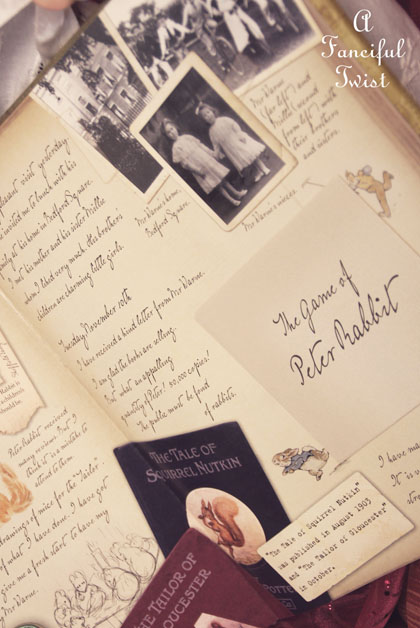 A
Fanciful
Twist
Mr Warne
(far left) and
Millie (second
from left) with
their brothers
and sisters.
pleasant visit yesterday.
invited me to lunch with his
family at his home in Bedford Square.
I met his mother and his sister Millie
whom I liked very much. His brothers
children are charming little girls.
Mr Warne's home,
Bedford Square.
Mr Warne's nieces.
Tuesday November 10th
I have received a kind letter from Mr Warne.
I am glad the books are selling.
But what an appalling
quantity of Peter! 50,000 copies!
The public must be fond
of rabbits.
The Game of
Peter Rabbit
Peter Rabbit received
many reviews. But I
think it is a mistake to
attend to them.
drawings of mice for the "Tailor"
of what I have done. I have got
give me a fresh start to have my
Mr Warne.
THE TALE OF
SQUIRREL NUTKIN
THE TAILOR OF
GLOUCESTER
"The Tale of Squirrel Nutkin"
was published in August 1903
and "The Tailor of Gloucester"
in October.
I have ma
It is